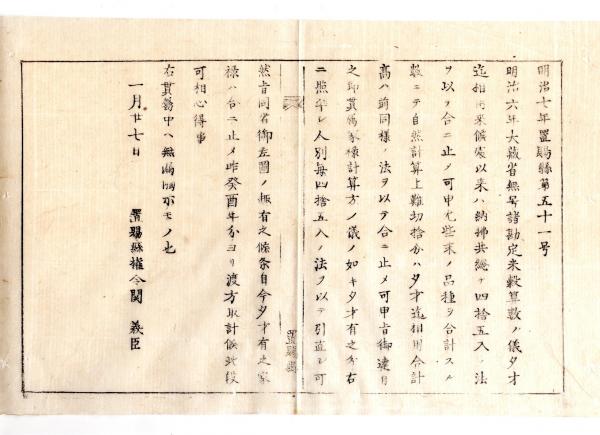 明治七年置賜縣第五十一号
明治六年大蔵省無号諸勘定米穀算数ノ儀夕才
迄相用来候處以来ハ納拂共總テ四捨五入ノ法
ヲ以テ合ニ止メ可申尤些末ノ品種ヲ合計スル
穀ニテ自然計算上難切捨分ハ夕才迄相用合計
高ハ前同様ノ法ヲ以テ合ニ止メ可申旨御達有
之即貫属家禄計算方ノ儀ノ如キ夕才有之分右
ニ照準シ人別毎四捨五入ノ法ヲ以テ引直シ可
置賜縣
然旨同省御左圖ノ趣有之候条自今夕才有之家
禄ハ合ニ止メ昨癸酉年分ヨリ渡方取計候此段
可相心得事
右貫属中ハ無漏相示モノ也
一月廿七日
置賜縣權令関 義臣